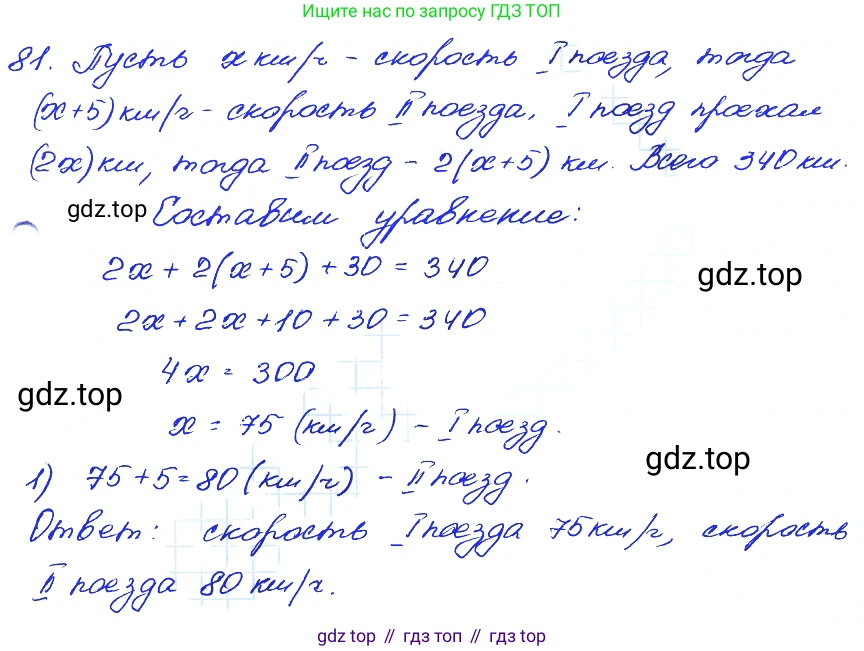 Ищите нас по запросу ГДЗ ТОП
81. Пусть x км/ч - скорость I поезда, тогда
(x+5) км/ч - скорость II поезда. I поезд проехал
(2x) км, тогда II поезд - 2(x+5) км. Всего 340 км.
gdz.top Составим уравнение:
2x + 2(x+5) + 30 = 340
gdz.top
2x + 2x + 10 + 30 = 340
4x = 300
gdz.top
x = 75 (км/ч) - I поезд.
gdz.top
1) 75 + 5 = 80 (км/ч) - II поезд.
Ответ: скорость I поезда 75 км/ч, скорость
II поезда 80 км/ч.
gdz top // гдз топ // gdz top